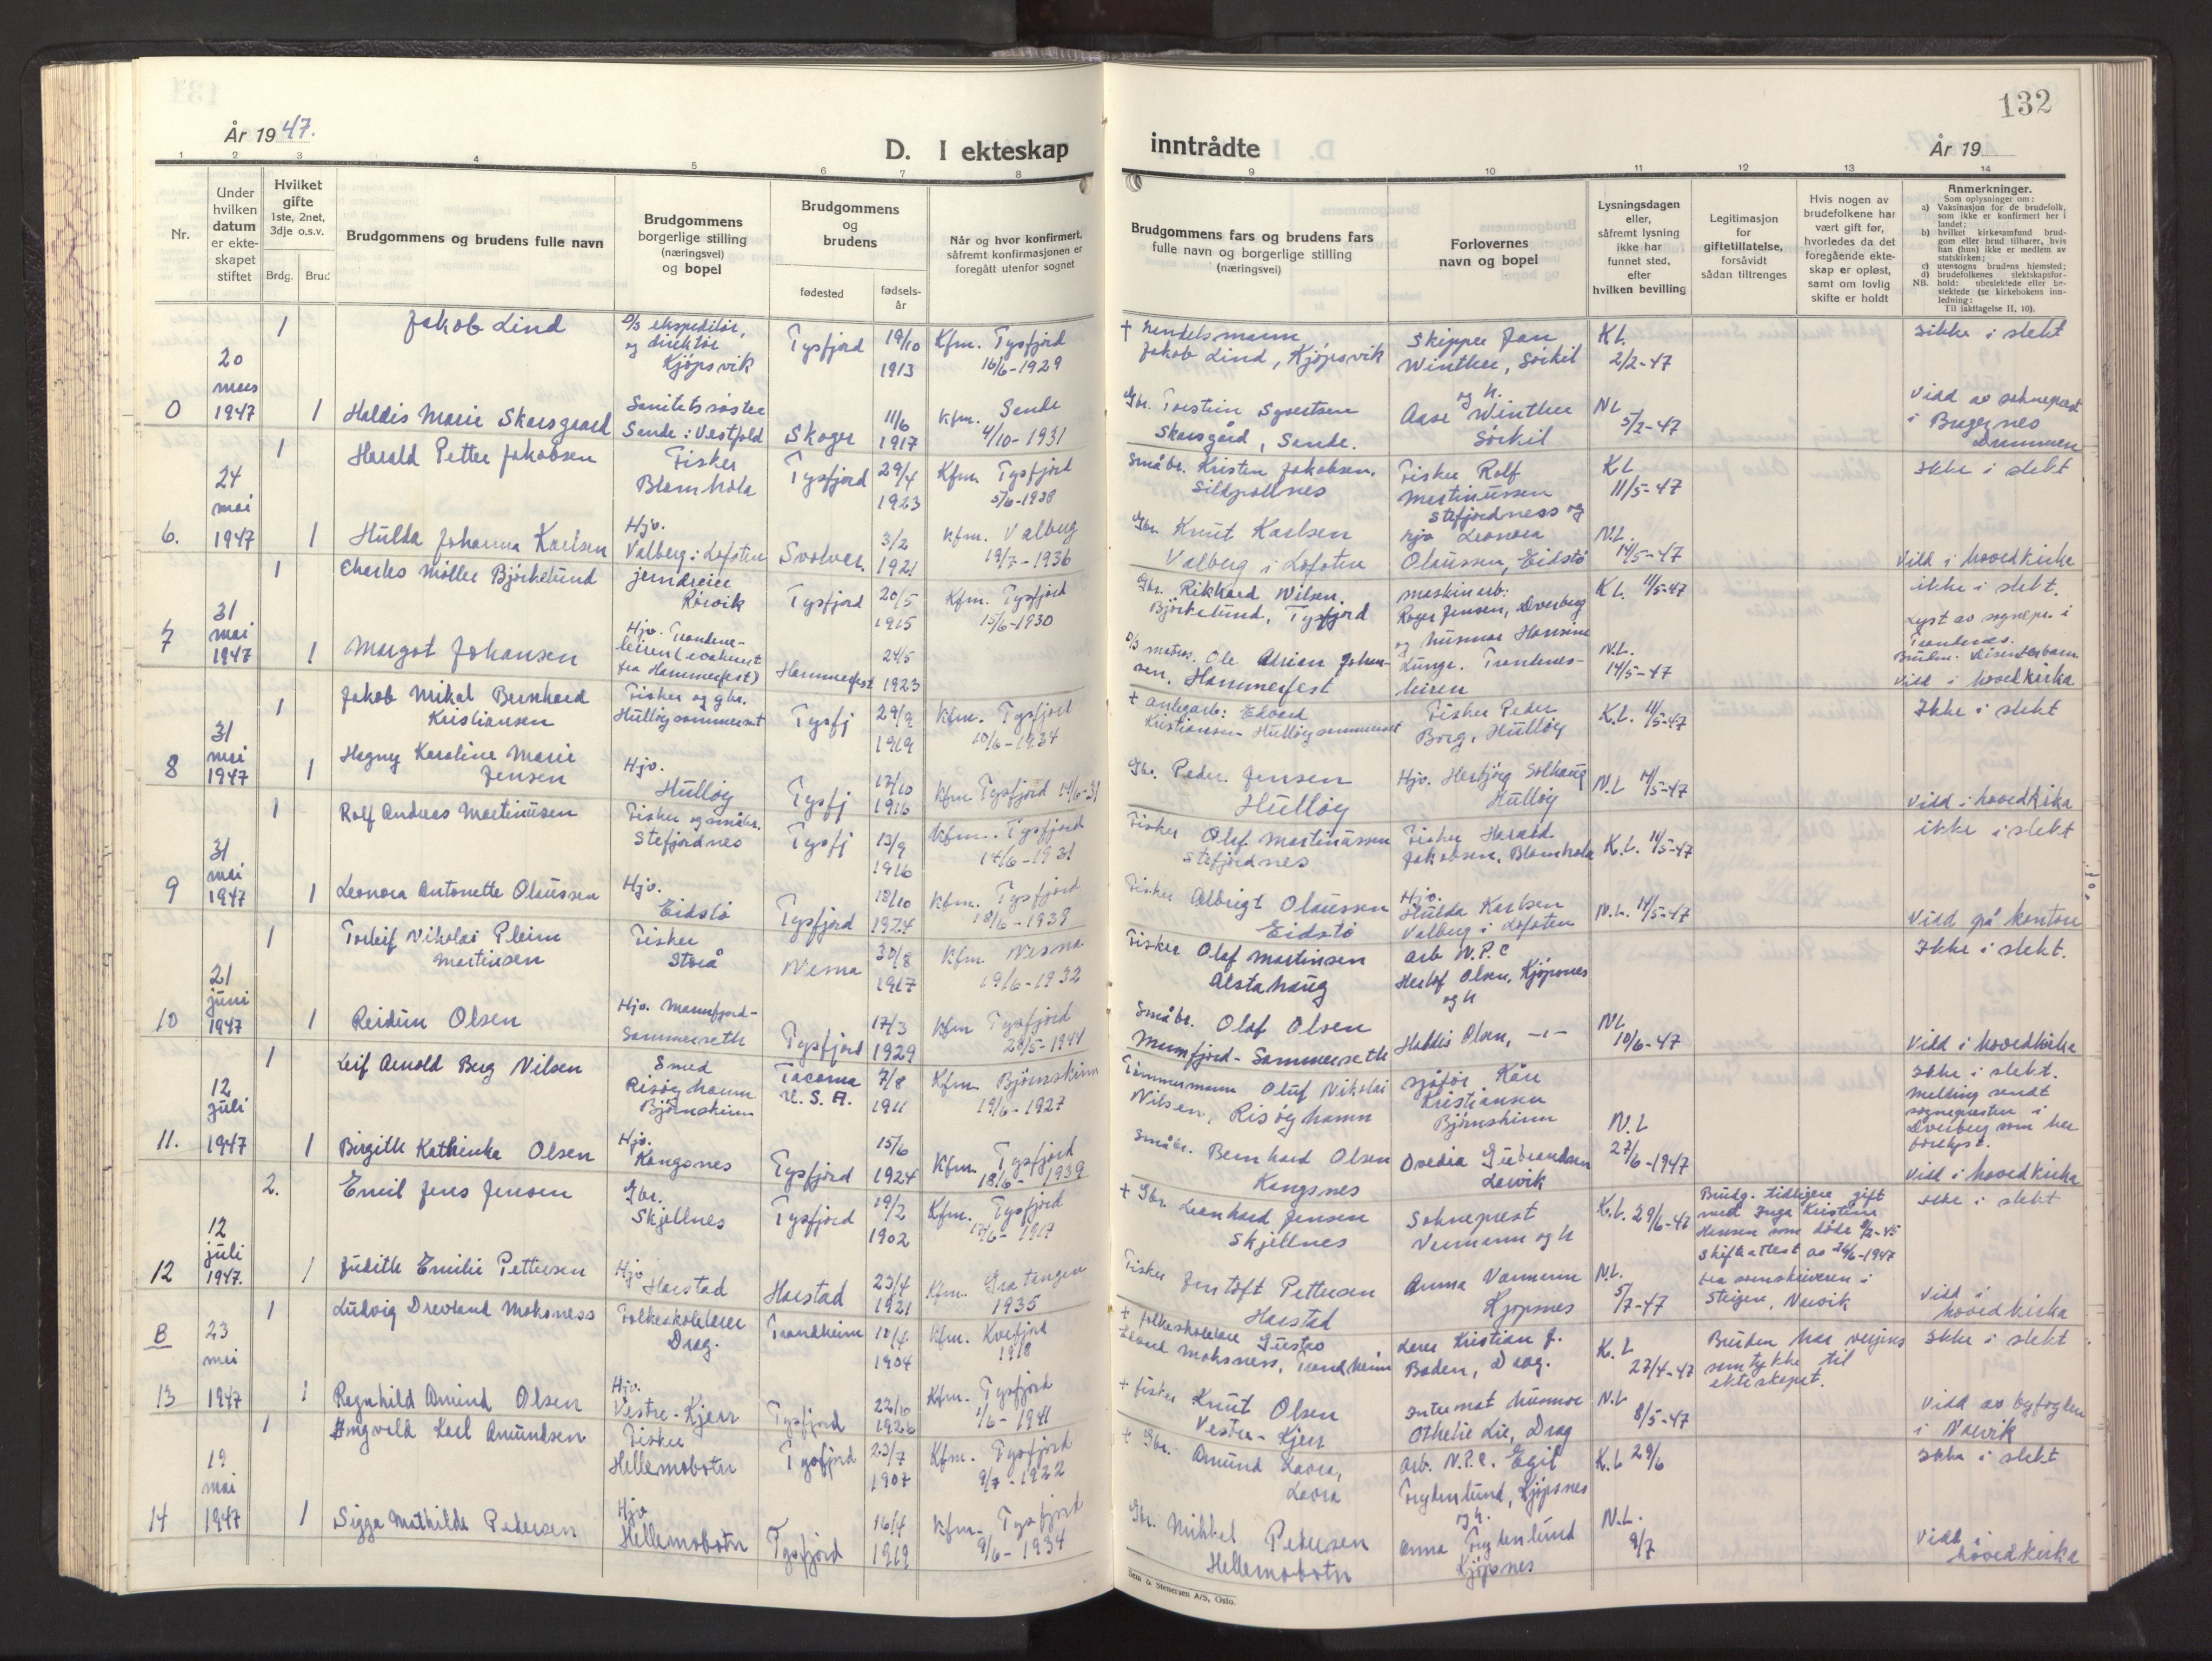 132
År 1947.
År 19
D. I ekteskap inntrådte
1 2 3 4 5 6 7 8 9 10 11 12 13 14
Nr.
Under
hvilken
datum
er ekte-
skapet
stiftet
Hvilket
gifte
1ste, 2net,
3dje o.s.v.
Brdg.
Brud
Brudgommens og brudens fulle navn
Brudgommens
borgerlige stilling
(næringsvei)
og bopel
Brudgommens
og
brudens
fødested
fødsels-
år
Når og hvor konfirmert,
såfremt konfirmasjonen er
foregått utenfor sognet
Brudgommens fars og brudens fars
fulle navn og borgerlige stilling
(næringsvei)
Forlovernes
navn og bopel
Lysningsdagen
eller,
såfremt lysning
ikke har
funnet sted,
efter
hvilken bevilling
Legitimasjon
for
giftetillatelse,
forsåvidt
sådan tiltrenges
Hvis nogen av
brudefolkene har
vært gift før,
hvorledes da det
foregående ekte-
skap er opløst,
samt om lovlig
skifte er holdt
Anmerkninger.
Som oplysninger om:
a) Vaksinasjon for de brudefolk,
som ikke er konfirmert her i
landet;
b) hvilket kirkesamfund brud-
gom eller brud tilhører, hvis
han (hun) ikke er medlem av
statskirken;
c) utensogns brudens hjemsted;
d) brudefolkenes slektskapsfor-
NB. hold: ubeslektede eller be-
slektede (se kirkebokens inn-
ledning:
Til iakttagelse II, 10).
0
20
mars
1947
1
Jakob Lind
D/S ekspeditør,
og direktør
Kjöpsvik
Tysfjord
19/10
1913
Kfm. Tysfjord
16/6-1929
+ Handelsmann
Jakob Lind, Kjöpsvik
Skipper Jan
Winther, Sörkil
og h.
K.L.
2/2-47
Ikke i slekt
1
Haldis Marie Skarsgaard
Sanitetssøster
Sande i Vestfold
Skoger
11/6
1917
Kfm. Sande
4/10-1931
Gbr. Torstein Syvertsen
Skarsgård, Sande.
Aase Winther
Sörkil
N.L
5/2-47
Vidd av sokneprest
i Bragernes
Drammen
6.
24
mai
1947
1
Harald Petter Jakobsen
Fisker
Blomhola
Tysfjord
29/4
1923
Kfm. Tysfjord
5/6-1938
Småbr. Kristen Jakobsen,
Sildpollnes
Fisker Rolf
Martinussen
Stefjordness og
K.L
11/5-47
Ikke i slekt
1
Hulda Johanna Karlsen
Hjv.
Valberg i Lofoten
Svolvær.
3/2
1921
Kfm. Valberg
19/7-1936
Gbr. Knut Karlsen
Valberg i Lofoten
hjv Leonora
Olaussen, Eidstö
N.L.
14/5-47
Vidd i hovedkirka
7
31
mai
1947
1
Charles Möller Björkelund
jerndreier
Rörvik
Tysfjord
20/5
1915
Kfm. Tysfjord
15/6-1930
Gbr. Rikhard Nilsen,
Björkelund, Tysfjord
maskinarb:
Roger Jensen, Dverberg
K L. 11/5-47
ikke i slekt.
Lyst av sognepr. i
Trondenes.
1
Margot Johansen
Hjv. Trondenes-
leiren (evakuert
fra Hammerfest)
Hammerfest
24/5
1923
D/S matros. Ole Adrian Johan-
sen, Hammerfest
og husmor Hansine
Lunge. Trondenes-
leiren
N.L.
14/5-47
Bruden. Dissenterbarn
Vidd i hovedkirka
8
31
mai
1947
1
Jakob Mikal Bernhard
Kristiansen
Fisker og gbr.
Hullöysommerset
Tysfj
29/9
1919
Kfm. Tysfjord
10/6-1934
+ anleggarb: Edvard
Kristiansen Hullöysommerset
Fisker Peder
Borg, Hullöy
K.L. 11/5-47
Ikke i slekt
1
Hagny Karoline Marie
Jensen
Hjv.
Hullöy
Tysfj
17/10
1916
Kfm Tysfjord 14/6-31
Gbr. Peder Jensen
Hullöy
Hjv. Herbjörg Solhaug
Hullöy
N.L 14/5-47
Vidd i hovedkirka
9
31
mai
1947
1
Rolf Andreas Martinusen
Fisker og småbr.
Stefjordnes
Tysfj
13/9
1916
Kfm. Tysfjord
14/6-1931
Fisker Olaf Martinussen
Stefjordnes
Fisker Harald
Jakobsen, Blomhola
K.L. 14/5-47
ikke i slekt
1
Leonora Antonette Olaussen
Hjv.
Eidstö
Tysfjord
18/10
1924
Kfm. Tysfjord
18/6-1939
Fisker Albrigt Olaussen
Eidstö
Hjv.
Hulda Karlsen
Valberg i Lofoten
N.L. 14/5-47
Vidd på kontore
10
21
juni
1947
1
Torleif Nikolai Pleim
Martinsen
Fisker
Storå
Nesna
30/8
1917
Kfm. Nesna
19/6-1932
Fisker Olaf Martinsen
Alstahaug
arb N.P.C
Herlof Olsen, Kjöpsnes
og h
Ikke i slekt.
1
Reidun Olsen
Hjv. Mannfjord-
Sommerseth
Tysfjord
17/3
1929
Kfm Tysfjord
28/5-1944
Småbr. Olaf Olsen
Mannfjord-Sommerseth
Haldis Olsen, -"-
N.L
10/6-47
Vidd i hovedkirka
11.
12
juli
1947
1
Leif Arnold Berg Nilsen
Smed
Risöyhamn
Björnskinn
Tacoma
U.S.A.
7/8
1911
Kfm. Björnskinn
19/6-1927
Tömmermann Oluf Nikolai
Nilsen, Risöyhamn
sjåför Kåre
Kristiansen
Björnskinn
Ikke i slekt.
Melding sendt
sognepresten i
Dverberg som har
forelyst.
1
Birgithe Kathinka Olsen
Hjv.
Kangsnes
Tysfjord
15/6
1924
Kfm. Tysfjord
18/6-1939
Småbr. Bernhard Olsen
Kangsnes
Ovedia Gudbrandsen
Leivik
N.L
27/6-1947
Vidd i hovedkirka
12
12
juli
1947.
2.
Emil Jens Jensen
Gbr.
Skjellnes
Tysfjord
19/2
1902
Kfm. Tysfjord
17/6-1917
+ Gbr. Leonhard Jensen
Skjellnes
Sokneprest
Varmann og h
K.L. 29/6-47
Brudg. tidligere gift
med Inga Kristina
Hansen som döde
Skifteattest av 26/6-1947
fra sorenskriveren i
Steigen, Narvik
Ikke i slekt
1
Judith Emilie Pettersen
Hjv
Harstad
Harstad
23/4
1921
Kfm. Gratangen
1935
Fisker Jentoft Pettersen
Harstad
Anna Varmann
Kjöpsnes
N.L.
5/7-47
Vidd i
hovedkirka
B
13
23
mai
1947
1
Ludvig Drevland Moksness
Folkeskolelærer
Drag.
Trondheim
10/4
1904
Kfm. Kvæfjord
1918
+ folkeskolelærer Gustav
Moksness, Trondheim
Lærer Kristian J.
Boden, Drag.
K.L
27/4-47
Bruden har verjens
samtykke til
ekteskapet.
Ikke i slekt
1
Ragnhild Amund Olsen
Hjv.
Vestre-Kjerr
Tysfjord
22/10
1926
Kfm. Tysfjord
1/6-1941
+ fisker Knut Olsen
Vestre-Kjerr
internat husmor
Othelie Lie, Drag
N.L
8/5-47
Vidd av byfogden
i Narvik
14
19
mai
1947
1
Ingvald Karl Amundsen
Fisker
Hellemobotn
Tysfjord
23/7
1907
Kfm. Tysfjord
9/7-1922
+ Gbr. Amund Laora,
Laora
Arb. N.P.C. Egil
Frydenlund, Kjöpsnes
og h.
K.L 29/6
Ikke i slekt
1
Sigga Mathilde Pedersen
Hjv
Hellemobotn
Tysfjord
16/4
1919
Kfm. Tysfjord
9/6-1934
Gbr. Mikkel Pedersen
Hellemobotn
Anna Frydenlund
Kjöpsnes
N.L.
9/7
Vidd i
hovedkirka
Sem & Stenersen A/S, Oslo.